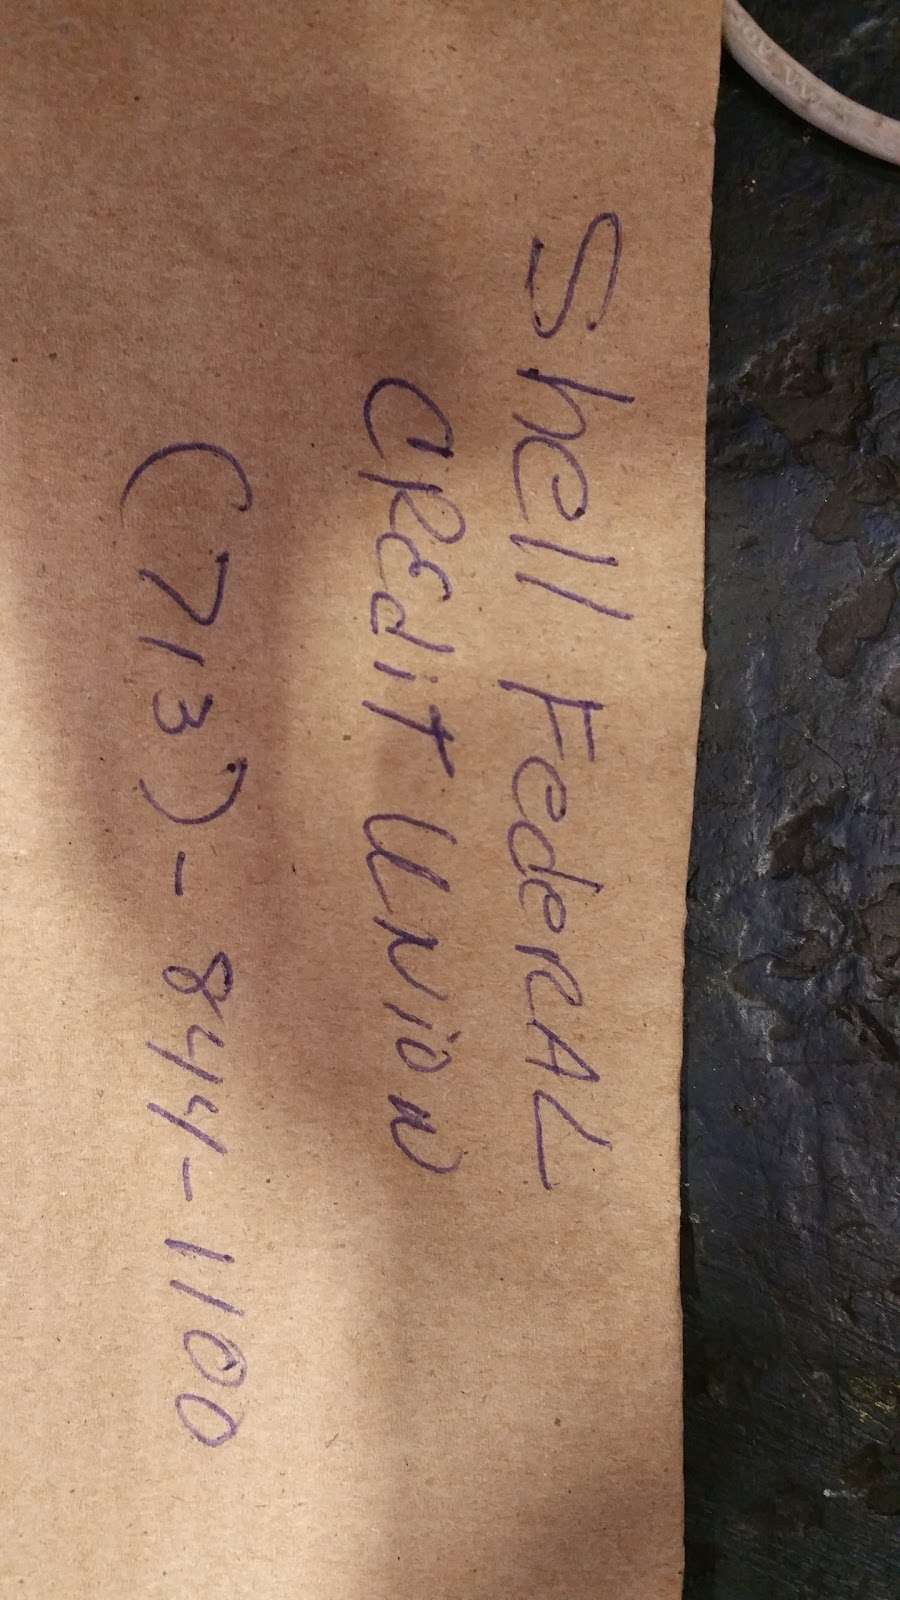 Shell FedeRAL
CREdit UNioN
(713)-844-1100